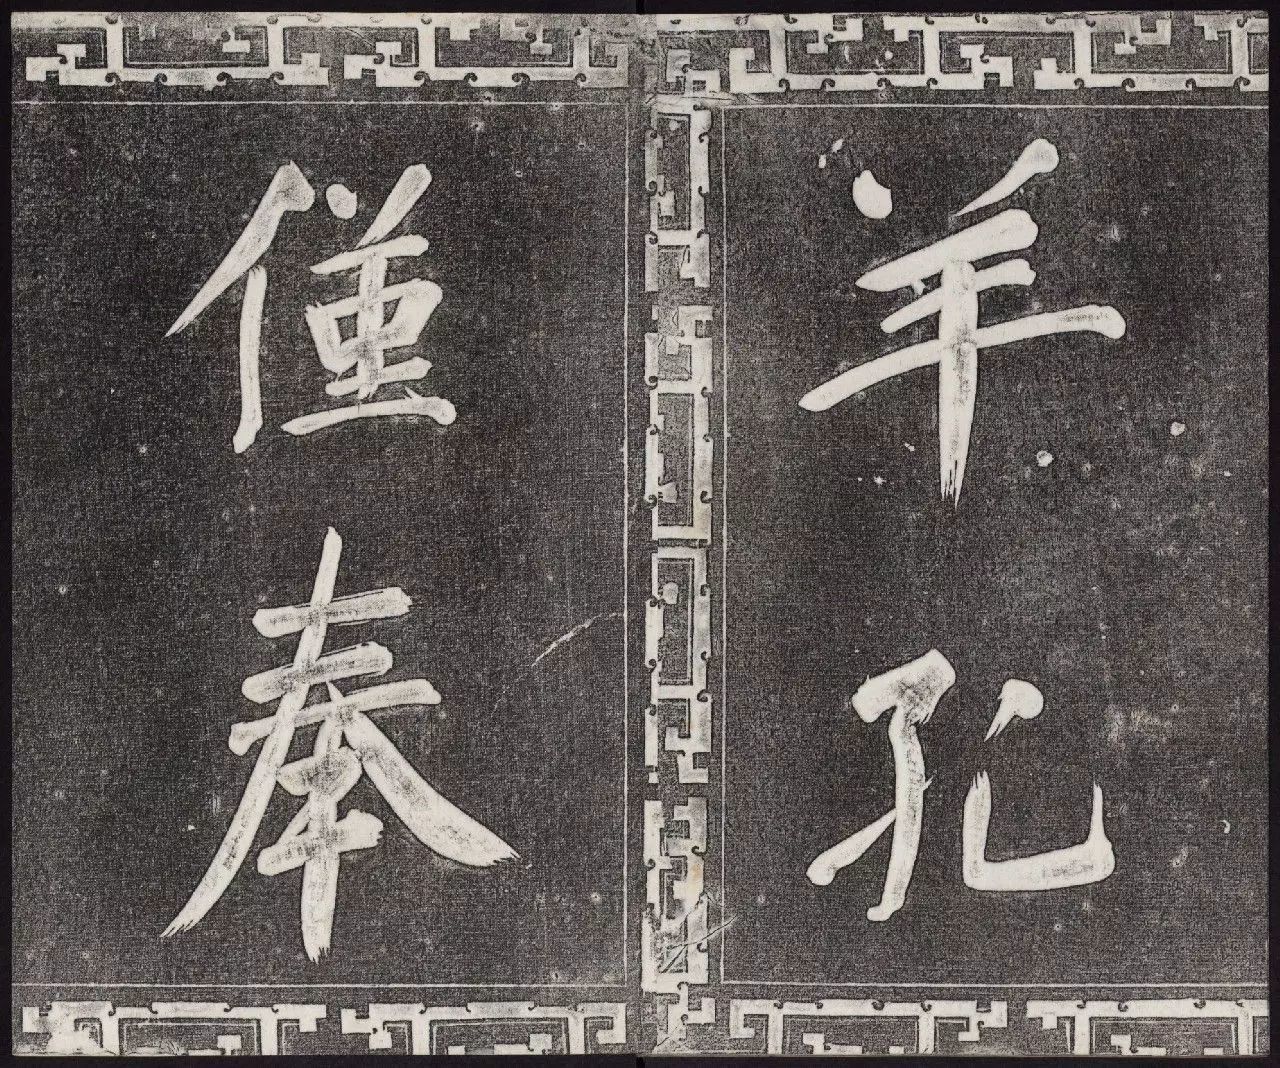 羊孔
僅奉